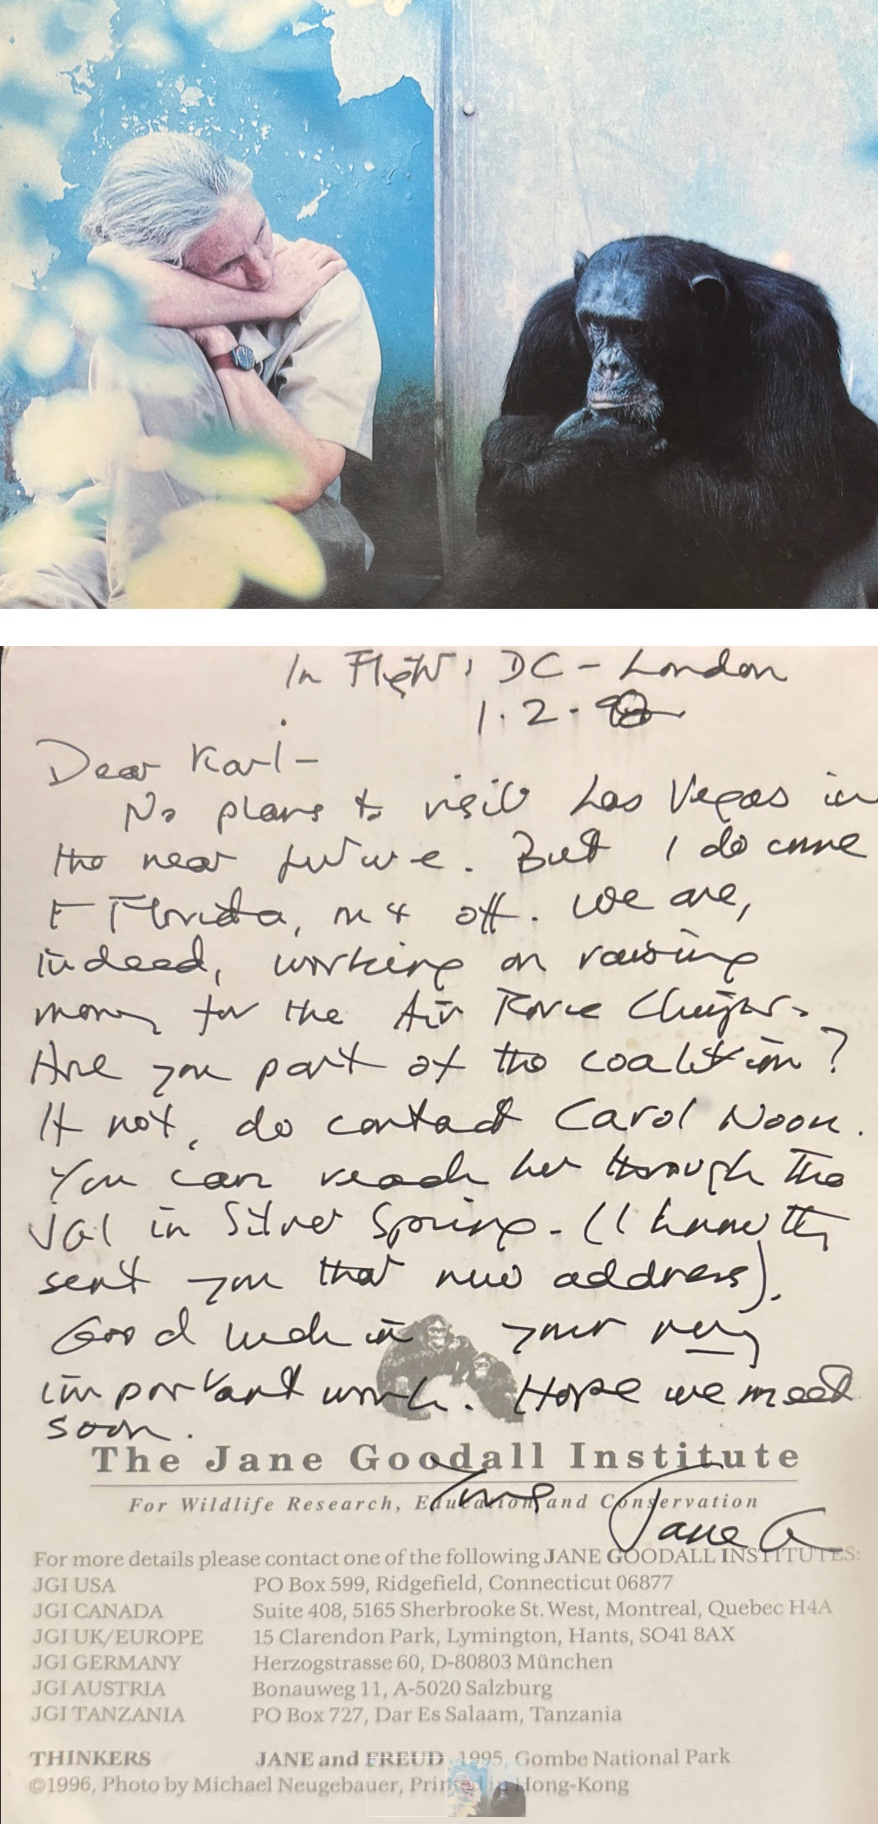 In Flight, DC - London
1.2.98
Dear Karl -
No plans to visit Las Vegas in
the near future. But I do come
to Florida, on & off. We are,
indeed, working on raising
money for the Air Force Chimps.
Are you part of the coalition?
If not, do contact Carol Noon.
You can reach her through the
JGI in Silver Spring. (I know they
sent you that new address).
Good luck in your very
important work. Hope we meet
soon.
The Jane Goodall Institute
For Wildlife Research, Education and Conservation
Jane G
For more details please contact one of the following JANE GOODALL INSTITUTES:
JGI USA PO Box 599, Ridgefield, Connecticut 06877
JGI CANADA Suite 408, 5165 Sherbrooke St. West, Montreal, Quebec H4A
JGI UK/EUROPE 15 Clarendon Park, Lymington, Hants, SO41 8AX
JGI GERMANY Herzogstrasse 60, D-80803 München
JGI AUSTRIA Bonauweg 11, A-5020 Salzburg
JGI TANZANIA PO Box 727, Dar Es Salaam, Tanzania
THINKERS JANE and FREUD 1995, Gombe National Park
©1996, Photo by Michael Neugebauer, Printed in Hong-Kong